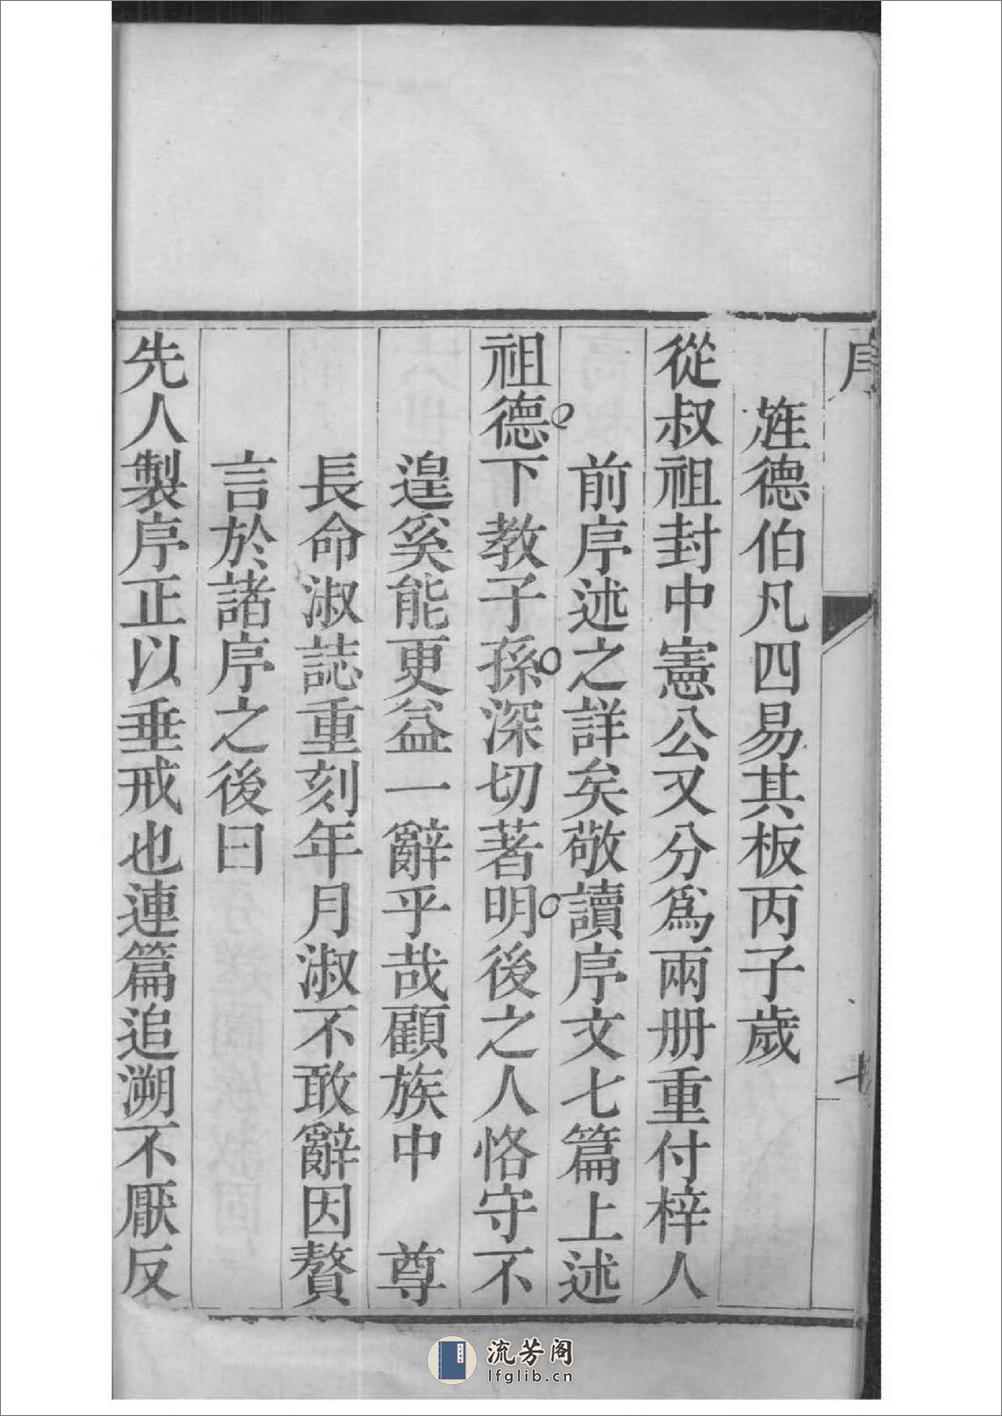 序
旌德伯凡四易其板丙子歲
從叔祖封中憲公又分爲兩册重付梓人
前序述之詳矣敬讀序文七篇上述
祖德下教子孫深切著明後之人恪守不
遑奚能更益一辭乎哉顧族中　尊
長命淑誌重刻年月淑不敢辭因贅
言於諸序之後曰
先人製序正以垂戒也連篇追溯不厭反
流芳阁
lfglib.cn